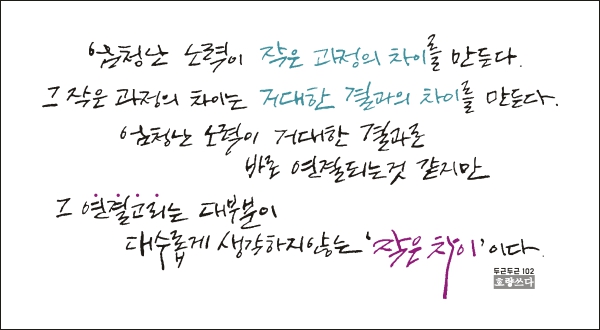 엄청난 노력이 작은 과정의 차이를 만든다.
그 작은 과정의 차이는 거대한 결과의 차이를 만든다.
엄청난 노력이 거대한 결과로
바로 연결되는것 같지만
그 연결고리는 대부분이
대수롭게 생각하지않는 '작은 차이'이다.
두근두근 102
호랑쓰다